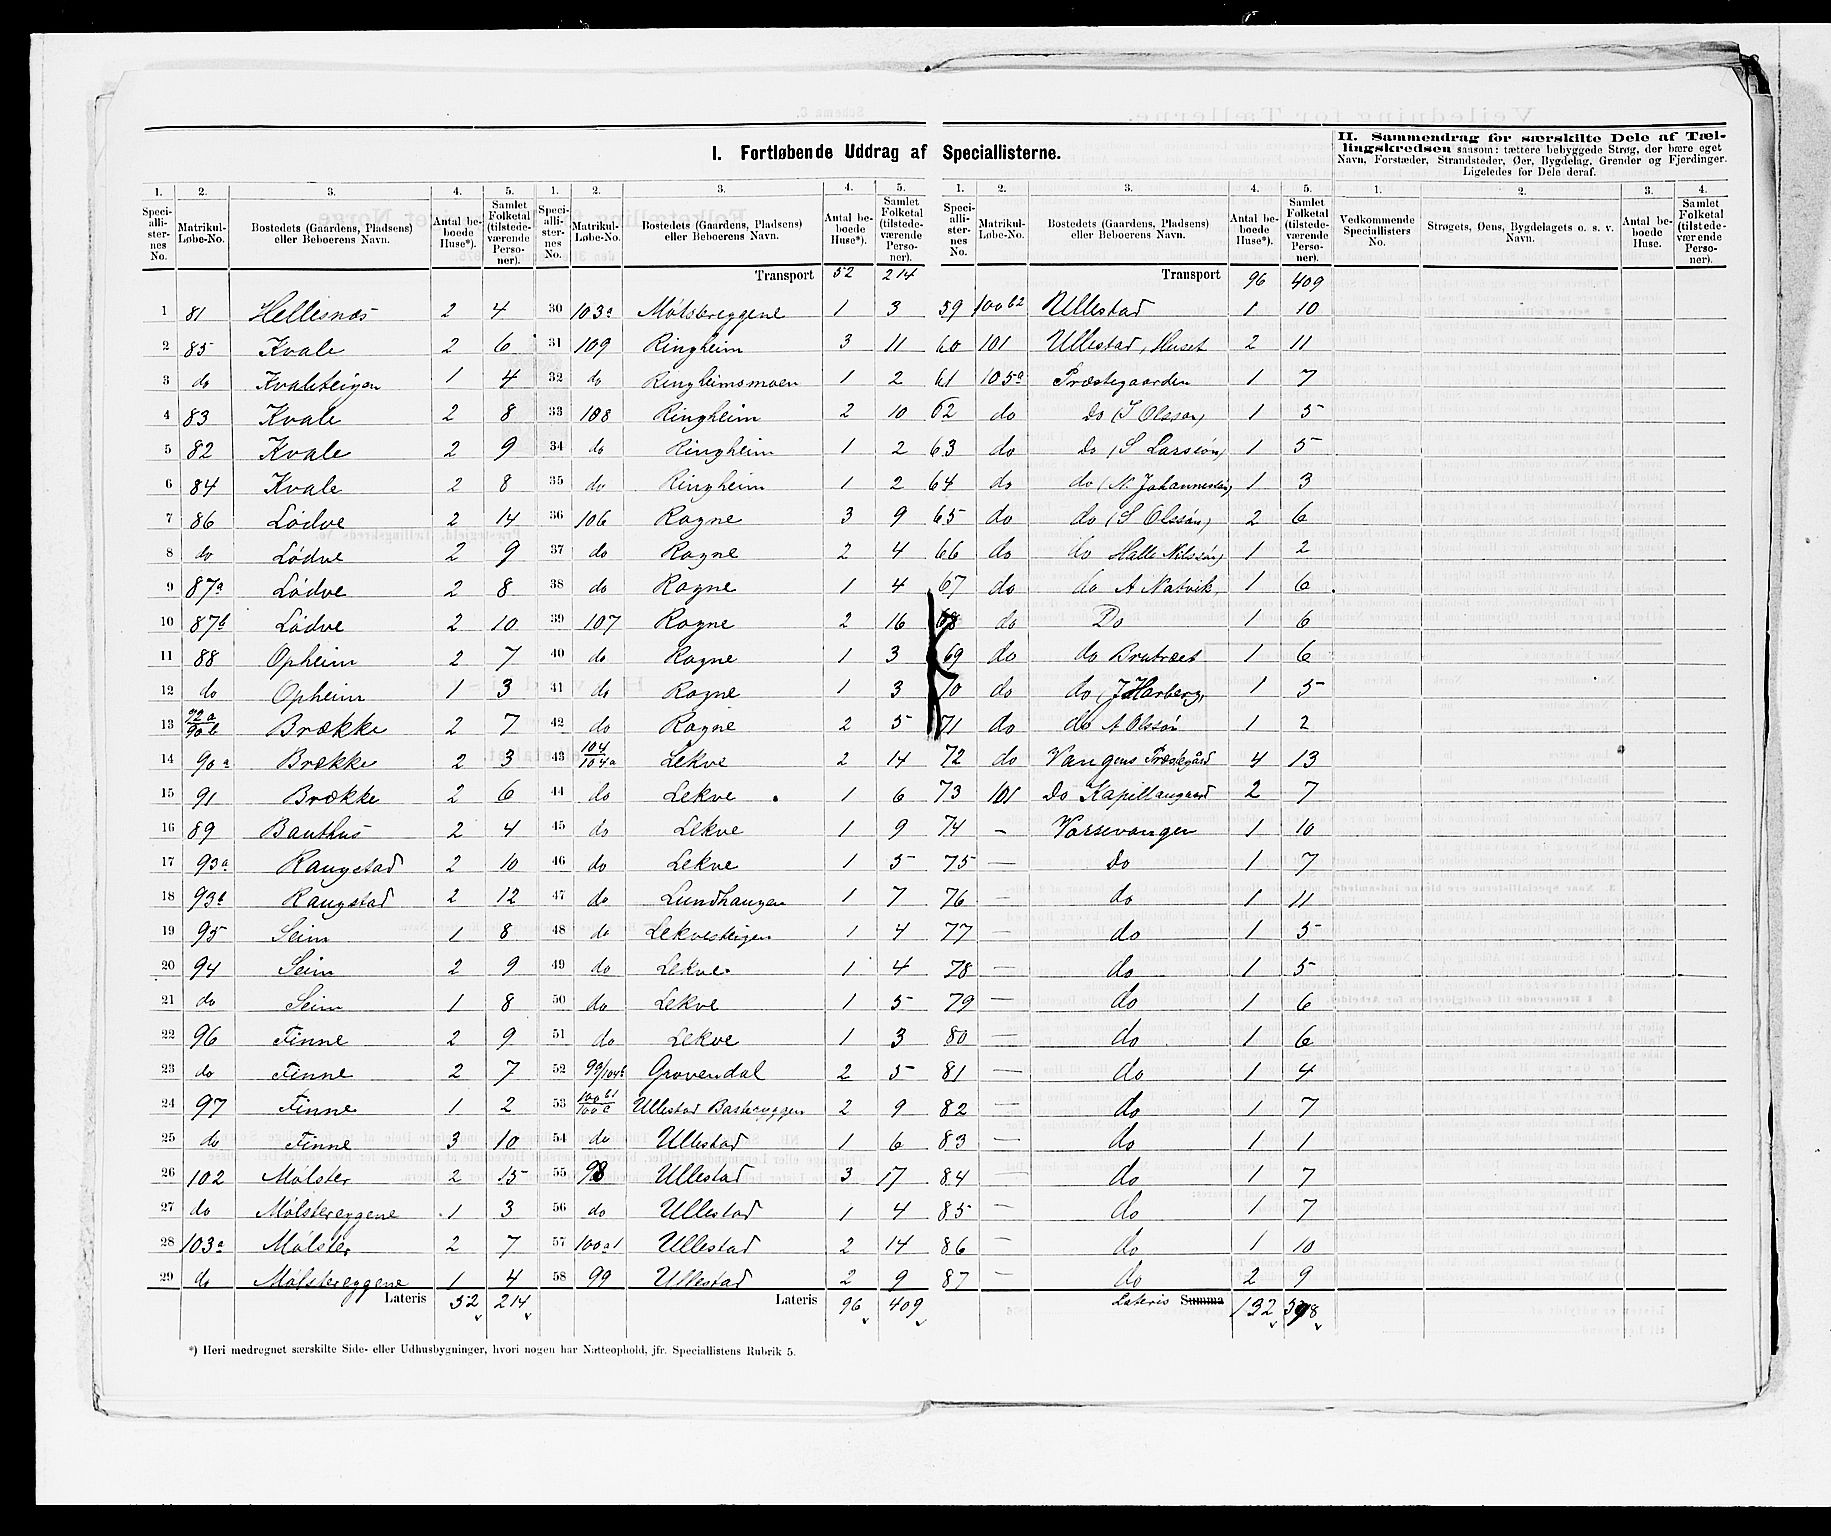 I. Fortløbende Uddrag af Speciallisterne.
II. Sammendrag for særskilte Dele af Tællingskredsen saasom: tættere bebyggede Strøg, der bære eget Navn, Forstæder, Strandsteder, Øer, Bygdelag, Grender og Fjerdinger. Ligeledes for Dele deraf.
1. 2. 3. 4. 5. 1. 2. 3. 4. 5. 1. 2. 3. 4. 5. 1. 2. 3. 4.
Speciallisternes No. Matrikul-Løbe-No. Bostedets (Gaardens, Pladsens) eller Beboerens Navn. Antal beboede Huse*). Samlet Folketal (tilstedeværende Personer).
Speciallisternes No. Matrikul-Løbe-No. Bostedets (Gaardens, Pladsens) eller Beboerens Navn. Antal beboede Huse*). Samlet Folketal (tilstedeværende Personer).
Speciallisternes No. Matrikul-Løbe-No. Bostedets (Gaardens, Pladsens) eller Beboerens Navn. Antal beboede Huse*). Samlet Folketal (tilstedeværende Personer).
Vedkommende Speciallisters No. Strøgets, Øens, Bygdelagets o. s. v. Navn. Antal beboede Huse. Samlet Folketal (tilstedeværende Personer).
1 81 Hellesnæs 2 4
2 85 Kvale 2 6
3 do Kvaleteigen 1 4
4 83 Kvale 2 8
5 82 Kvale 2 9
6 84 Kvale 2 8
7 86 Lødve 2 14
8 do Lødve 2 9
9 87a Lødve 2 8
10 87b Lødve 2 10
11 88 Opheim 2 7
12 do Opheim 1 3
13 92a/90b Brække 2 7
14 90a Brække 2 3
15 91 Brække 2 6
16 89 Bauthus 2 4
17 93a Raugstad 2 10
18 93b Raugstad 2 12
19 95 Seim 1 8
20 94 Seim 2 9
21 do Seim 1 8
22 96 Finne 2 9
23 do Finne 2 7
24 97 Finne 1 2
25 do Finne 3 10
26 102 Mølster 2 15
27 do Mølstereggene 1 3
28 103a Mølster 2 7
29 do Mølstereggene 1 4
Lateris 52 214
Transport 52 214
30 103a Mølstereggene 1 3
31 109 Ringheim 3 11
32 do Ringheimsmoen 1 2
33 108 Ringheim 2 10
34 do Ringheim 1 2
35 do Ringheim 1 2
36 106 Rogne 3 9
37 do Rogne 2 4
38 do Rogne 1 4
39 107 Rogne 2 16
40 do Rogne 1 3
41 do Rogne 1 3
42 do Rogne 2 5
43 104/104a Lekve 2 14
44 do Lekve 1 6
45 do Lekve 1 9
46 do Lekve 1 5
47 do Lundhaugen 1 7
48 do Lekvesteigen 1 4
49 do Lekve 1 4
50 do Lekve 1 5
51 do Lekve 1 3
52 99/104b Grovendal 2 5
53 100b1/100c Ullestad 2 9
54 do Ullestad 1 6
55 98 Ullestad 3 17
56 do Ullestad 1 4
57 100a1 Ullestad 2 14
58 99 Ullestad 2 9
Lateris 96 409
Transport 96 409
59 100b2 Ullestad 1 10
60 101 Ullestad, Huset 2 11
61 105a Præstegaarden 1 7
62 do Do (I Olsson) 1 5
63 do Do (S Larssøn) 1 5
64 do do (N. Johannessøn) 1 3
65 do do (S Olssøn) 2 6
66 do do Halle Nilssøn) 1 2
67 do do A Natvik, 1 6
68 do Do 1 6
69 do do Brutræet 1 6
70 do do (J Harberg, 1 5
71 do do A Olssøn 1 2
72 do Vangens Præstegård 4 13
73 101 Do Kapellangaard 2 7
74 – Vossevangen 1 10
75 — Do 1 7
76 — do 1 11
77 — do 1 5
78 — do 1 5
79 — do 1 6
80 — do 1 6
81 — do 1 4
82 — do 1 7
83 — do 1 1
84 — do 1 7
85 — do 1 7
86 — do 1 10
87 — do 2 9
Lateris Summa 132 598
*) Heri medregnet særskilte Side- eller Udhusbygninger, hvori nogen har Natteophold, jfr. Speciallistens Rubrik 5.